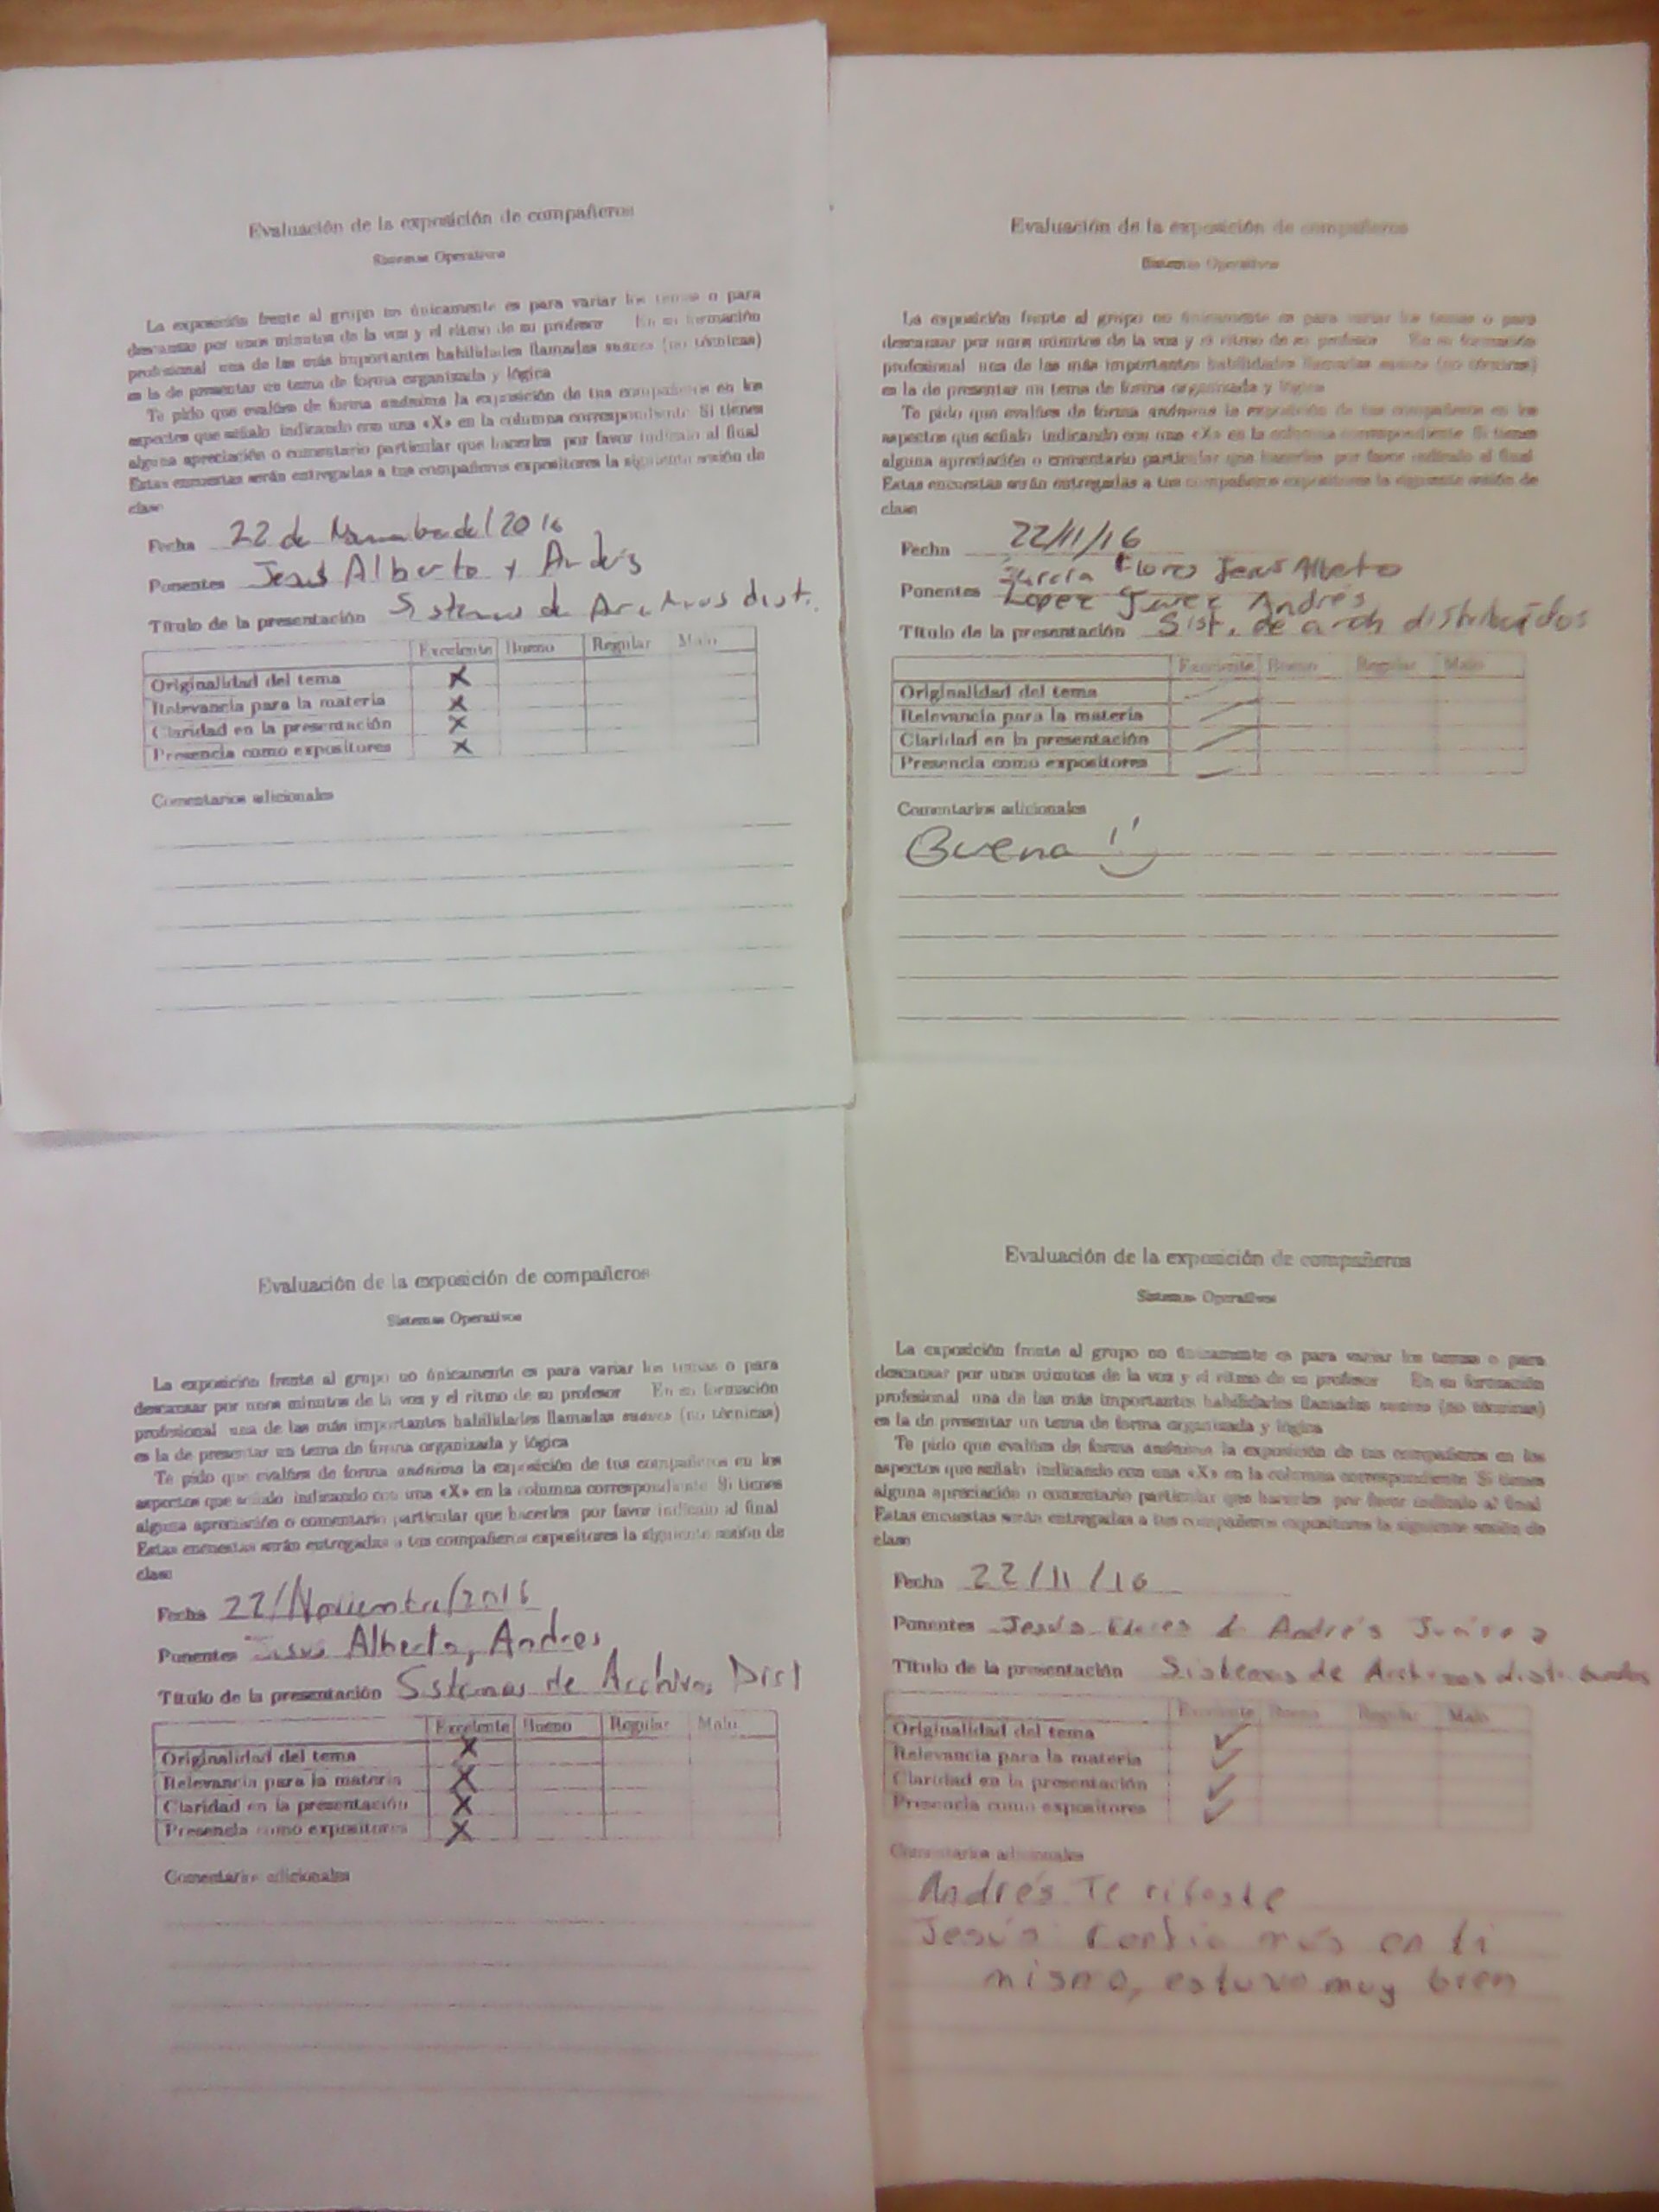 Evaluación de la exposición de compañeros
Sistemas Operativos
La exposición frente al grupo no únicamente es para variar los temas o para
descansar por unos minutos de la voz y el ritmo de su profesor En su formación
profesional una de las más importantes habilidades llamadas suaves (no técnicas)
es la de presentar un tema de forma organizada y lógica
Te pido que evalúes de forma anónima la exposición de tus compañeros en los
aspectos que señalo indicando con una «X» en la columna correspondiente Si tienes
alguna apreciación o comentario particular que hacerles por favor indícalo al final
Estas encuestas serán entregadas a tus compañeros expositores la siguiente sesión de
clase
Fecha 22 de del 2016
Ponentes Jesus Alberto y Andrés
Título de la presentación Sistemas de Archivos dist.
Excelente Bueno Regular Malo
Originalidad del tema X
Relevancia para la materia X
Claridad en la presentación X
Presencia como expositores X
Comentarios adicionales
Evaluación de la exposición de compañeros
Sistemas Operativos
La exposición frente al grupo no únicamente es para variar los temas o para
descansar por unos minutos de la voz y el ritmo de su profesor En su formación
profesional una de las más importantes habilidades llamadas suaves (no técnicas)
es la de presentar un tema de forma organizada y lógica
Te pido que evalúes de forma anónima la exposición de tus compañeros en los
aspectos que señalo indicando con una «X» en la columna correspondiente Si tienes
alguna apreciación o comentario particular que hacerles por favor indícalo al final
Estas encuestas serán entregadas a tus compañeros expositores la siguiente sesión de
clase
Fecha 22/11/16
García Jesus Alberto
Ponentes Lopez Andrés
Título de la presentación Sist. de arch distribuidos
Excelente Bueno Regular Malo
Originalidad del tema
Relevancia para la materia
Claridad en la presentación
Presencia como expositores
Comentarios adicionales
Buena !!
Evaluación de la exposición de compañeros
Sistemas Operativos
La exposición frente al grupo no únicamente es para variar los temas o para
descansar por unos minutos de la voz y el ritmo de su profesor En su formación
profesional una de las más importantes habilidades llamadas suaves (no técnicas)
es la de presentar un tema de forma organizada y lógica
Te pido que evalúes de forma anónima la exposición de tus compañeros en los
aspectos que señalo indicando con una «X» en la columna correspondiente Si tienes
alguna apreciación o comentario particular que hacerles por favor indícalo al final
Estas encuestas serán entregadas a tus compañeros expositores la siguiente sesión de
clase
Fecha 22/Noviembre/2016
Ponentes Jesus Alberto, Andres
Título de la presentación Sistemas de Archivos Dist
Excelente Bueno Regular Malo
Originalidad del tema X
Relevancia para la materia X
Claridad en la presentación X
Presencia como expositores X
Comentarios adicionales
Evaluación de la exposición de compañeros
Sistemas Operativos
La exposición frente al grupo no únicamente es para variar los temas o para
descansar por unos minutos de la voz y el ritmo de su profesor En su formación
profesional una de las más importantes habilidades llamadas suaves (no técnicas)
es la de presentar un tema de forma organizada y lógica
Te pido que evalúes de forma anónima la exposición de tus compañeros en los
aspectos que señalo indicando con una «X» en la columna correspondiente Si tienes
alguna apreciación o comentario particular que hacerles por favor indícalo al final
Estas encuestas serán entregadas a tus compañeros expositores la siguiente sesión de
clase
Fecha 22/11/16
Ponentes Jesús & Andrés Juárez
Título de la presentación Sistemas de Archivos distribuidos
Excelente Bueno Regular Malo
Originalidad del tema ✓
Relevancia para la materia ✓
Claridad en la presentación ✓
Presencia como expositores ✓
Comentarios adicionales
Andrés Te rifaste
Jesús confía más en ti
mismo, estuvo muy bien